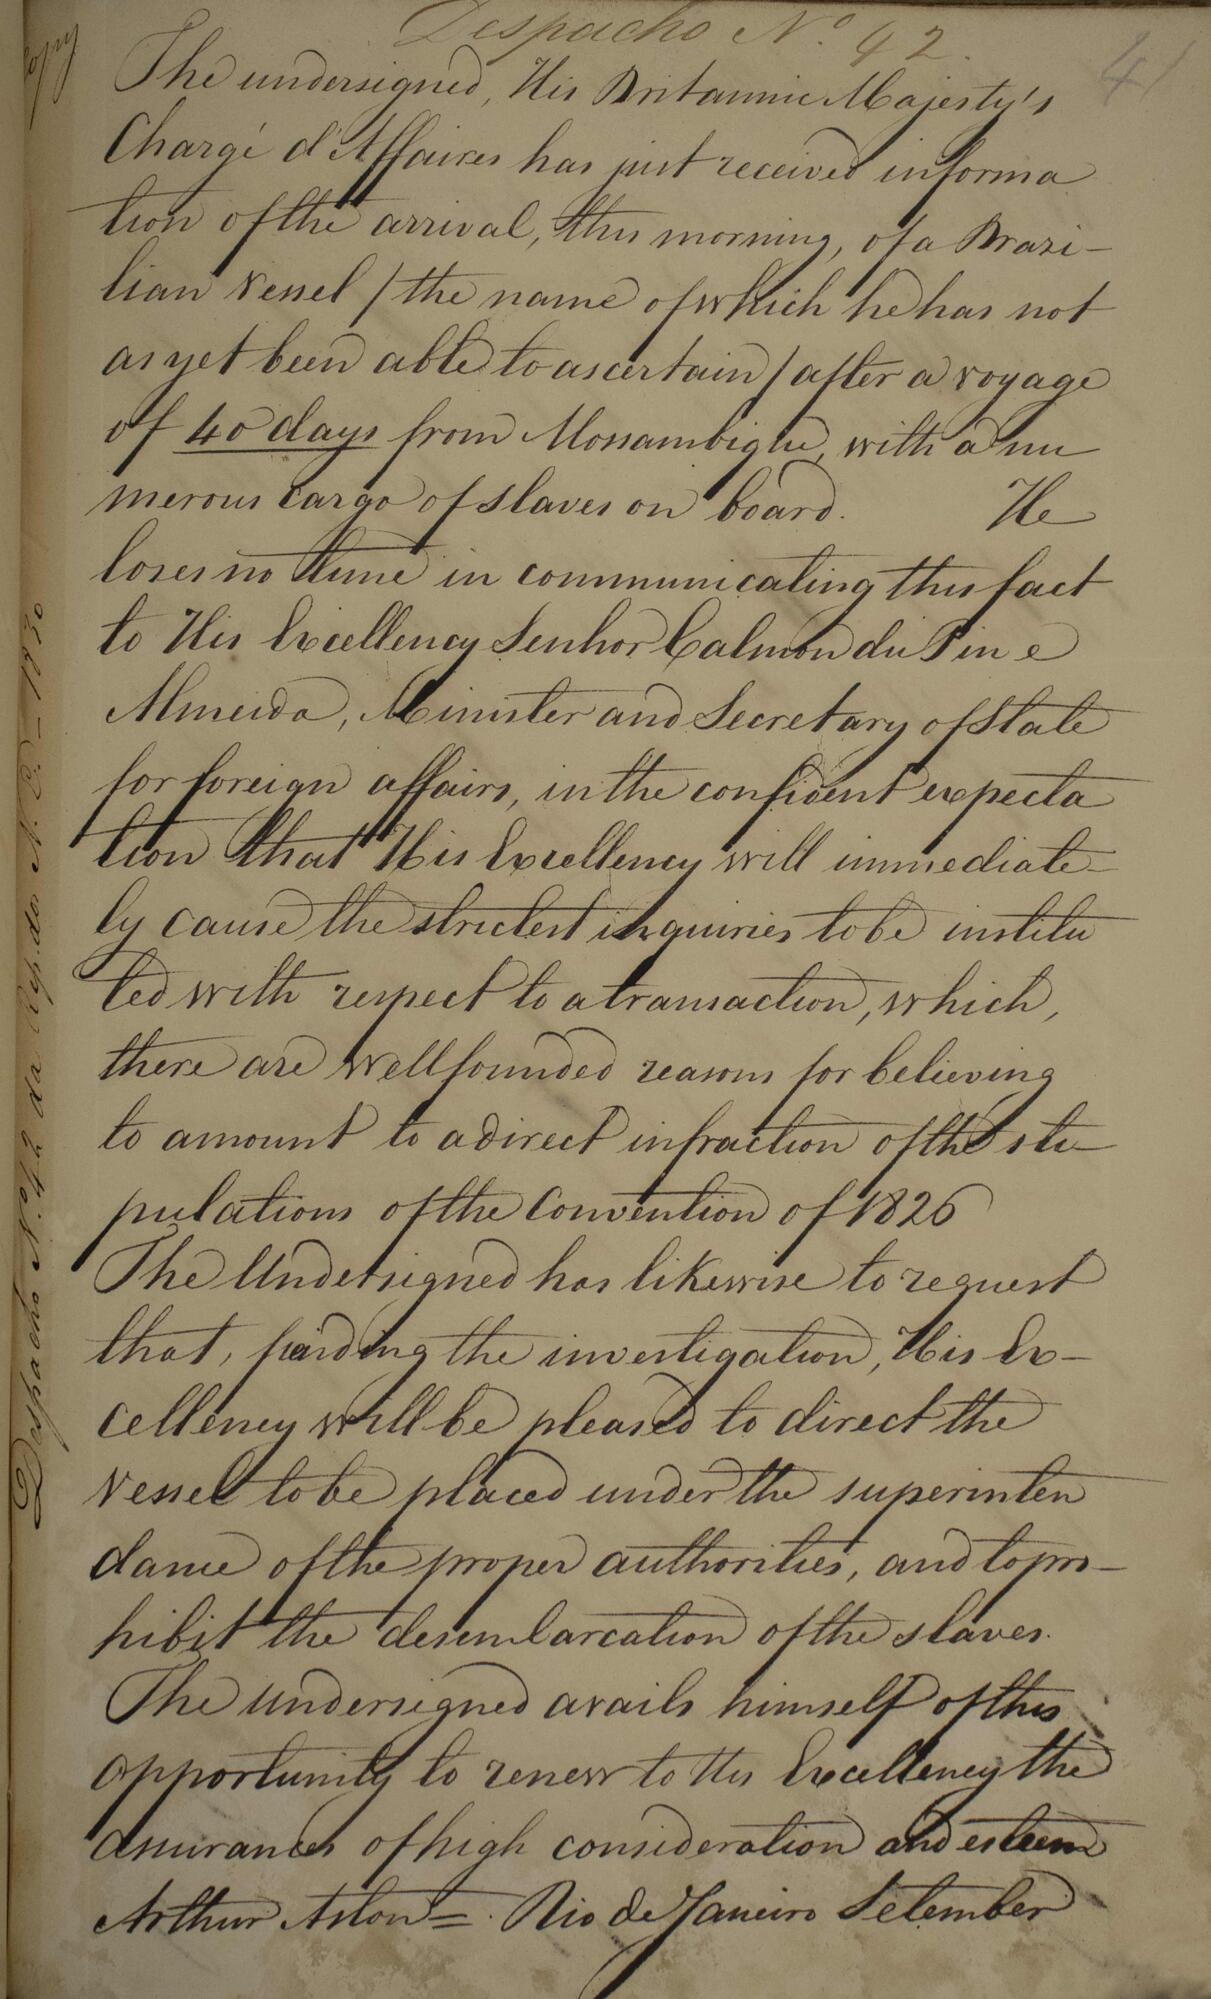 Despacho Nº 42.
41
Copy
The undersigned, His Britannic Majesty's
Chargé d'Affaires has just received informa
tion of the arrival, this morning, of a Brazi-
lian vessel / the name of which he has not
as yet been able to ascertain / after a voyage
of 40 days from Mossambique, with a nu
merous cargo of slaves on board. He
loses no time in communicating this fact
to His Excellency Senhor Calmon du Pin e
Almeida, Minister and Secretary of State
for foreign affairs, in the confident expecta
tion that His Excellency will immediate-
ly cause the strictest inquiries to be institu
ted with respect to a transaction, which,
there are well founded reasons for believing
to amount to a direct infraction of the sti-
pulations of the Convention of 1826
The Undersigned has likewise to request
that, pending the investigation, His Ex-
cellency will be pleased to direct the
vessel to be placed under the superinten
dance of the proper authorities, and to pro-
hibit the desembarcation of the slaves.
The undersigned avails himself of this
opportunity to renew to His Excellency the
assurances of high consideration and esteem
Arthur Aston =. Rio de Janeiro Setember
Despacho Nº 42 da Rep. dos N. E. - 1830